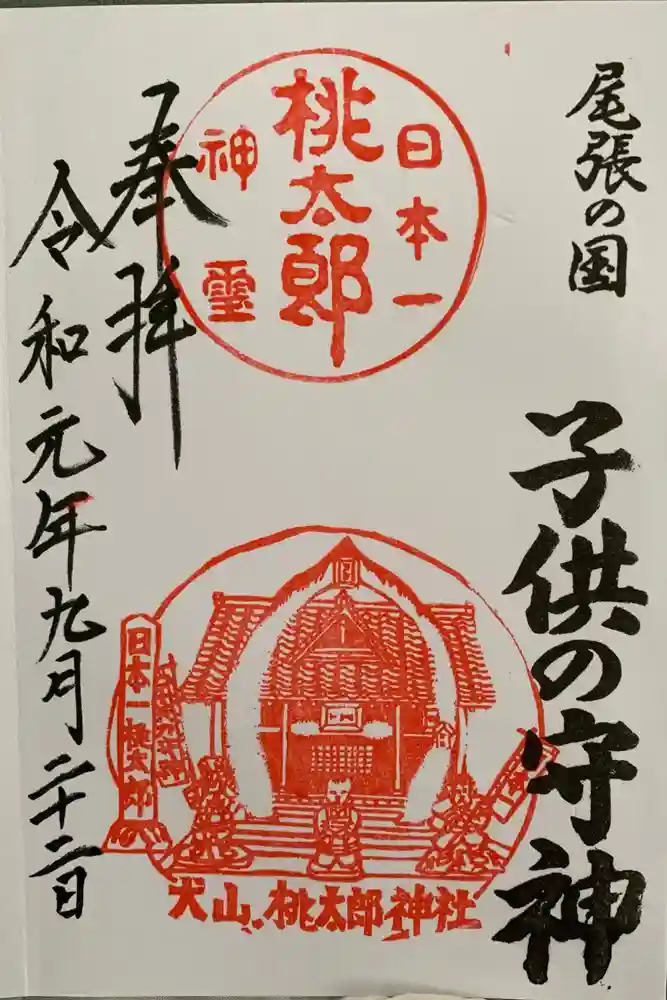 尾張の国
子供の守神
日本一
桃太郎
神霊
奉拝
令和元年九月二十二日
日本一桃太郎
犬山桃太郎神社